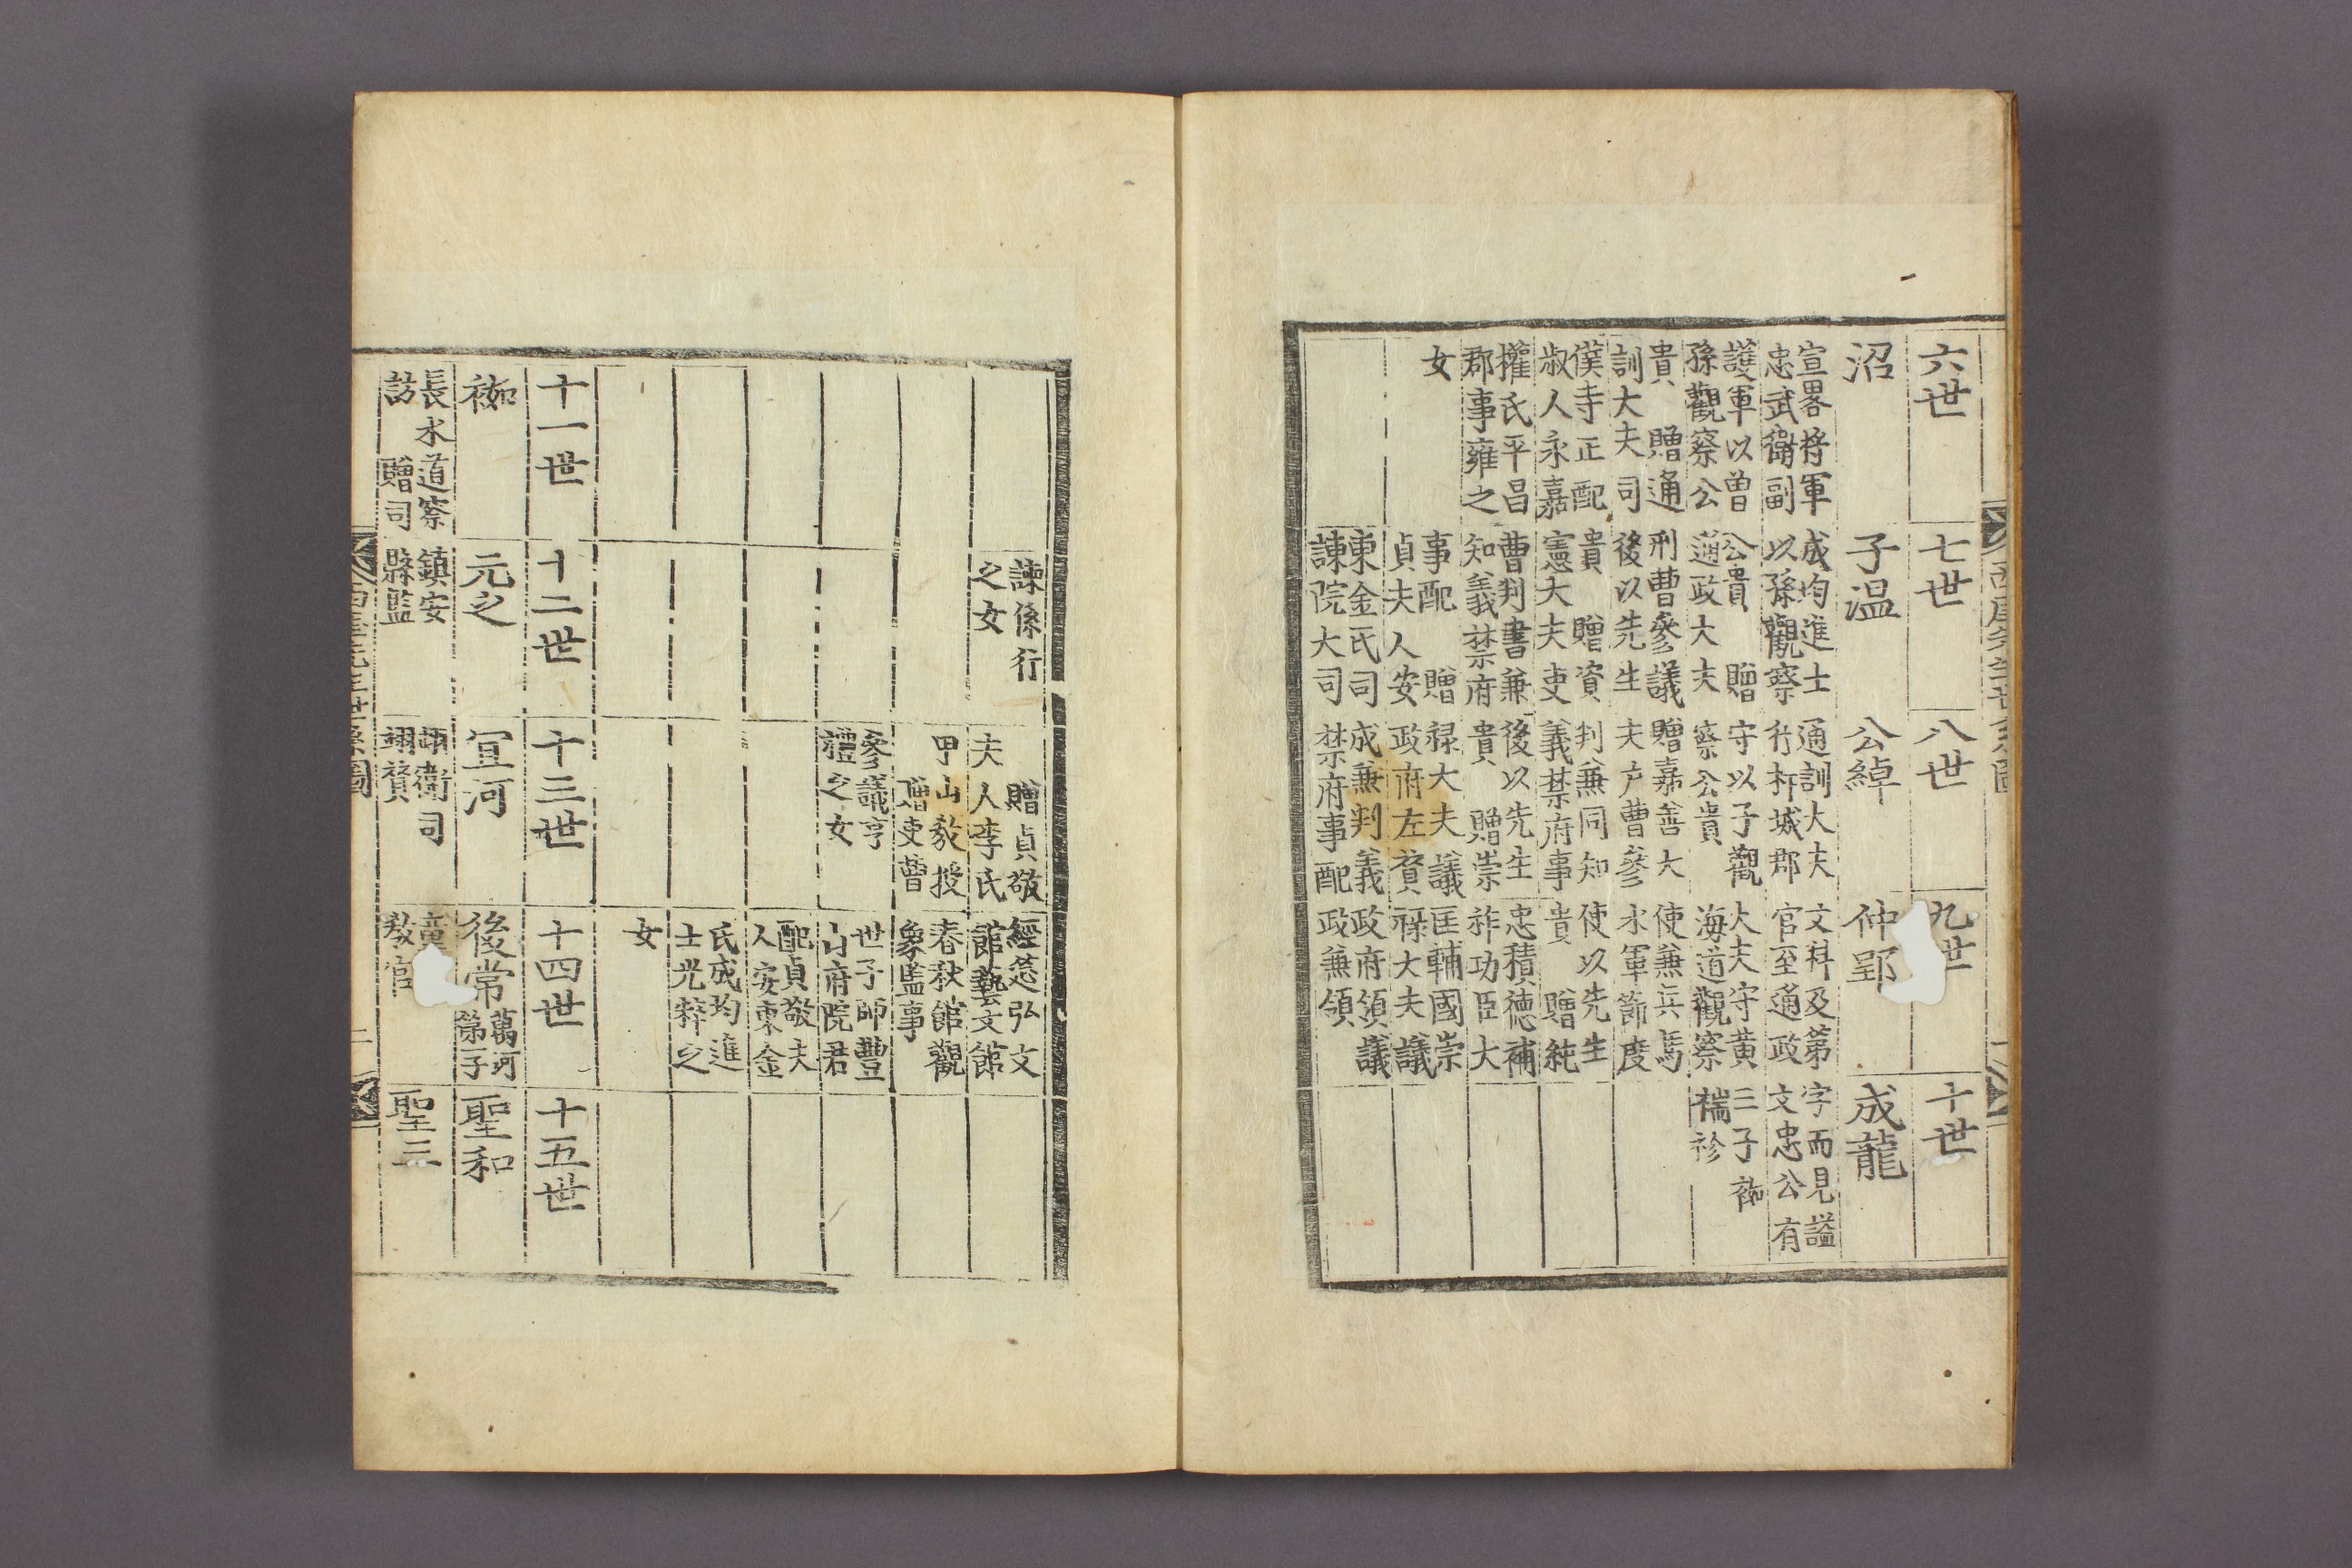 六世
沼
宣畧將軍
忠武衛副
護軍以曾
孫觀察公
貴 贈通
訓大夫司
僕寺正配
淑人永嘉
權氏平昌
郡事雍之
女
七世
子温
成均進士
以孫觀察
公貴 贈
通政大夫
刑曹參議
後以先生
貴 贈資
憲大夫吏
曹判書兼
知義禁府
事配 贈
貞夫人安
東金氏司
諫院大司
諫係行
之女
八世
公綽
通訓大夫
行杆城郡
守以子觀
察公貴
贈嘉善大
夫戶曹參
判兼同知
義禁府事
後以先生
貴 贈崇
祿大夫 議
政府左贊
成兼判義
禁府事配
贈貞敬
夫人李氏
甲山教授
贈吏曹
參議亨
禮之女
九世
仲郢
文科及第
官至通政
大夫守黃
海道觀察
使兼兵馬
水軍節度
使以先生
貴 贈純
忠積德補
祚功臣大
匡輔國崇
祿大夫議
政府領議
政兼領
經筵弘文
館藝文館
春秋館觀
象監事
世子師豐
山府院君
配貞敬夫
人安東金
氏成均進
士光粹之
女
十世
成龍
字而見謚
文忠公有
三子袽
褍袗
十一世
袽
長水道察
訪 贈司
十二世
元之
鎮安
縣監
十三世
宜河
翊衛司
翊贊
十四世
後常
萬河
第子
童
教官
十五世
聖和
聖三